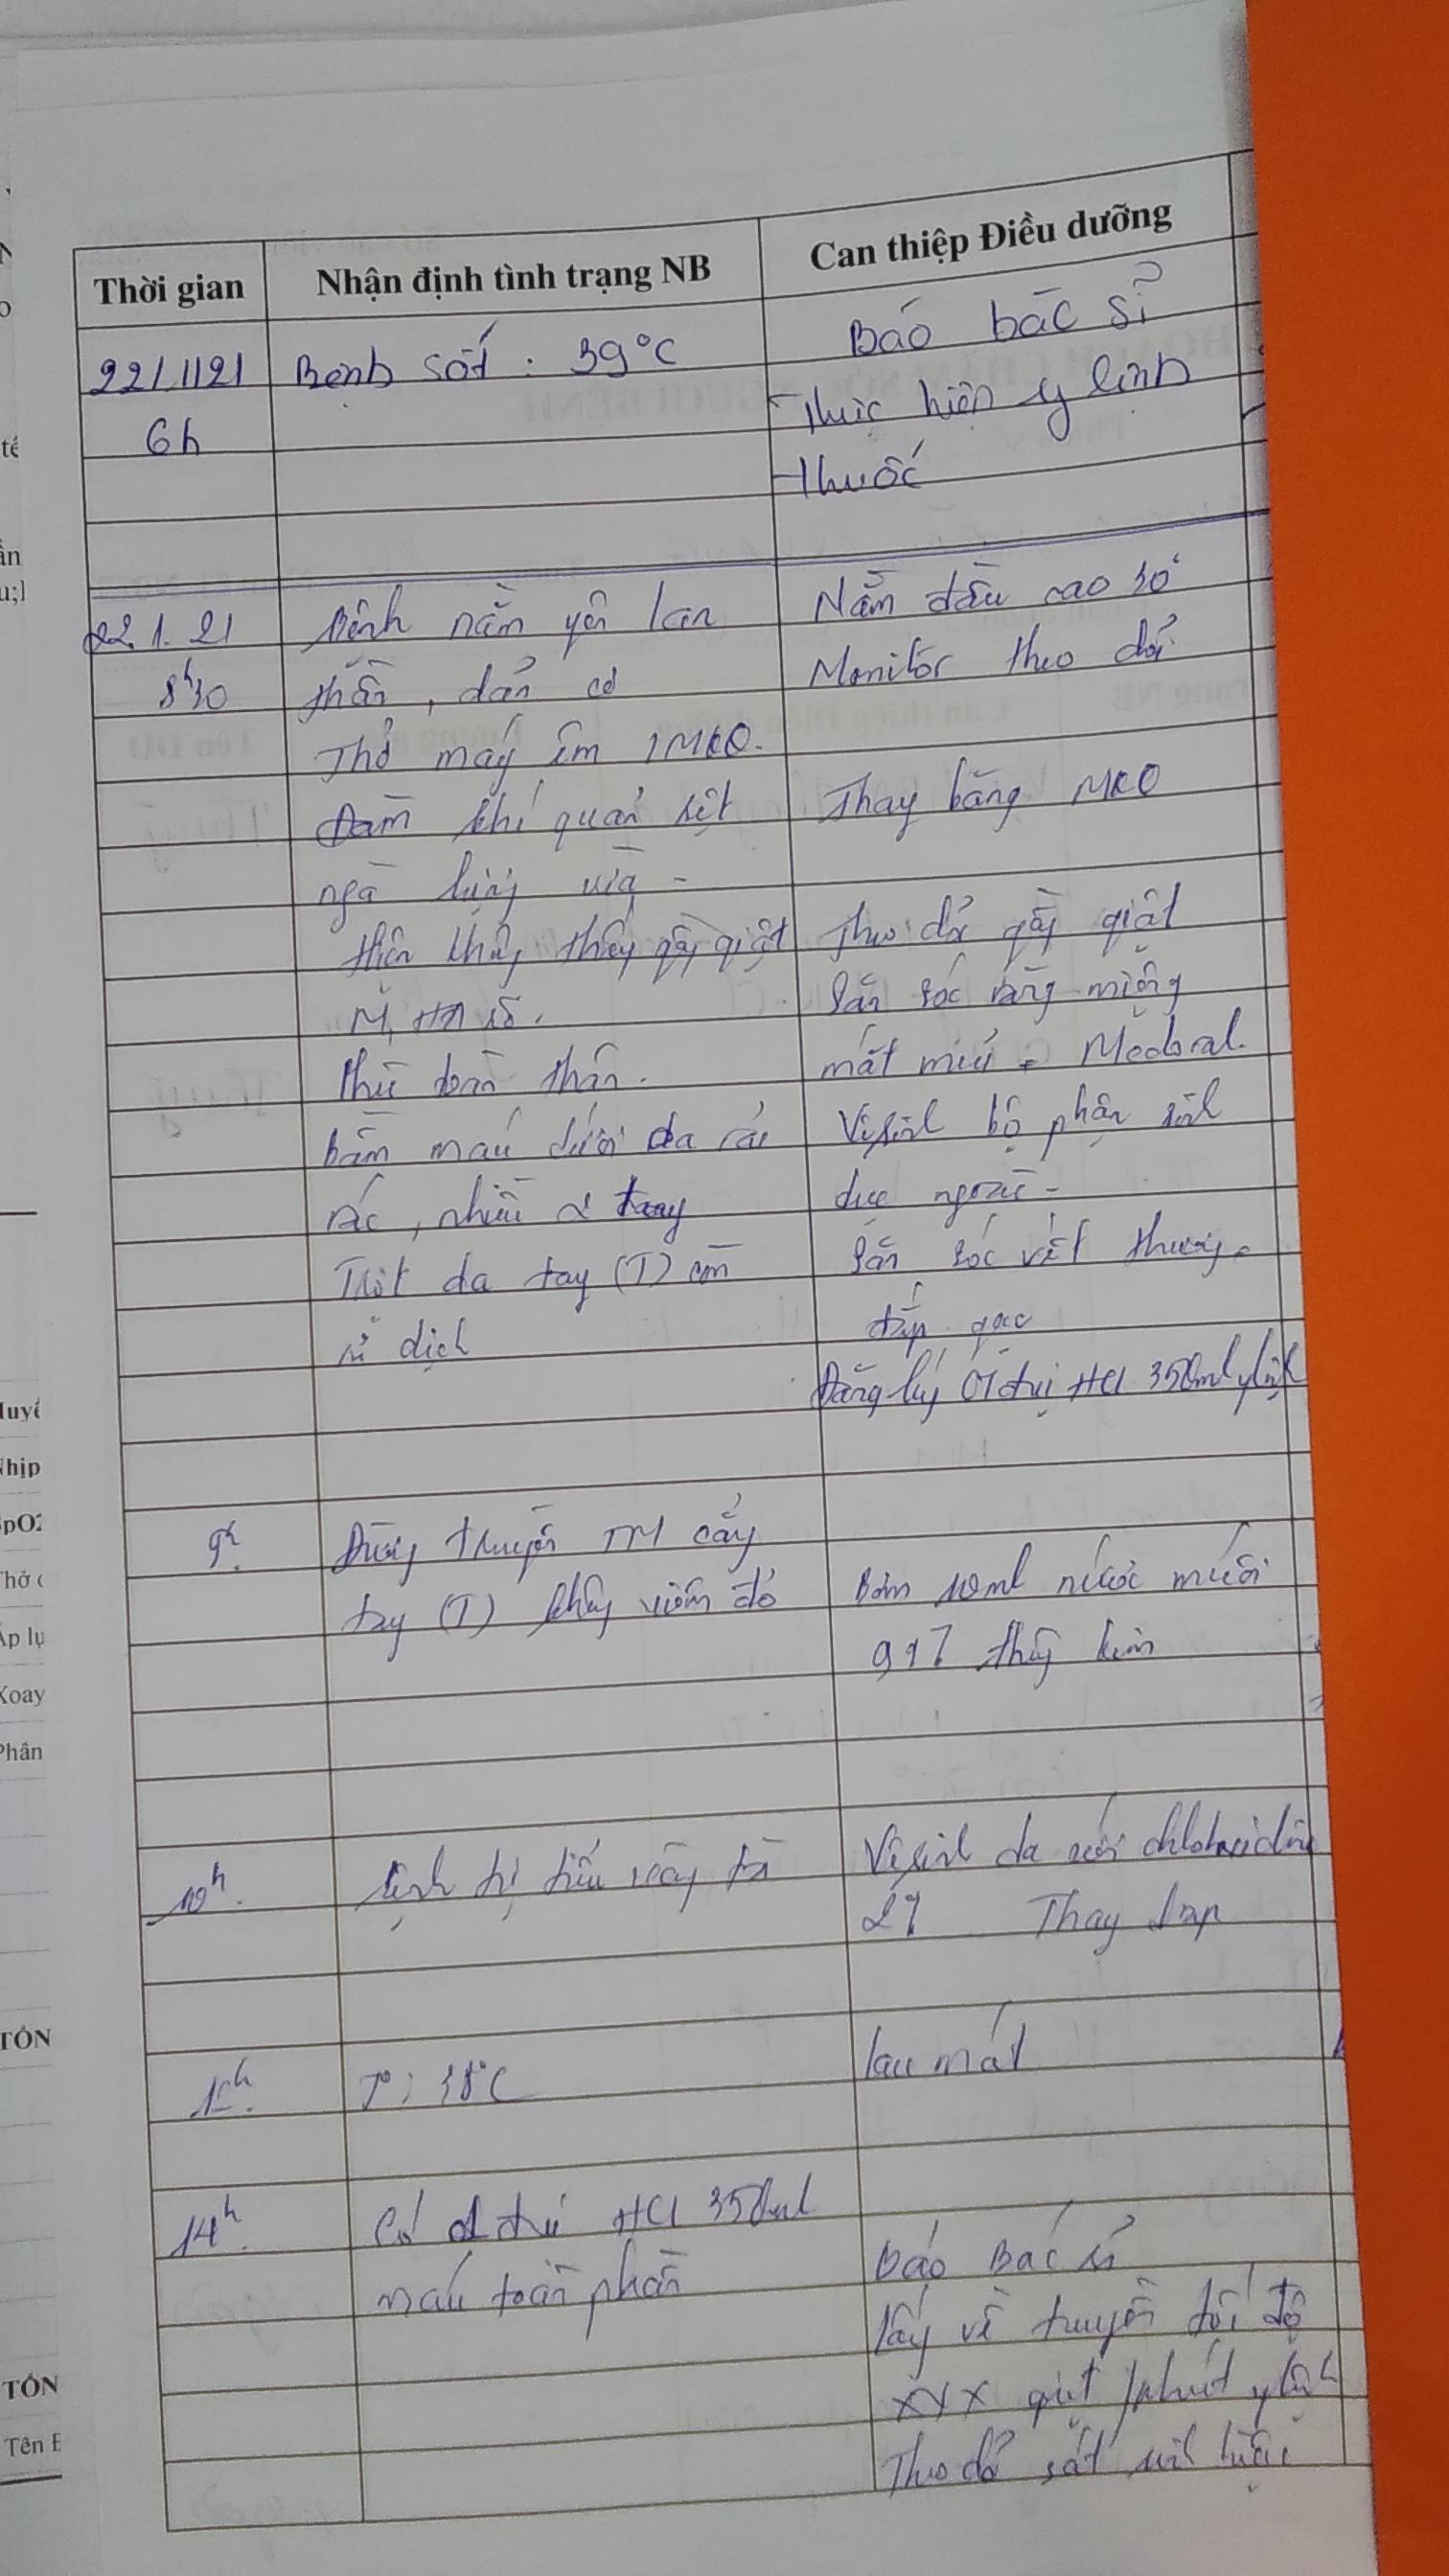 Thời gian Nhận định tình trạng NB Can thiệp Điều dưỡng
22/1/21 Bệnh sốt : 39°C Báo bác sĩ
6h - Thực hiện y lệnh
thuốc
22.1.21 Bệnh nằm yên Nằm đầu cao 30°
8h30 thần, dãn cơ Monitor theo dõi
Thở máy êm MKQ.
Đàm khí quản sệt Thay băng MKQ
ngà lượng vừa -
Hiện không thấy gồng giật Theo dõi gồng giật
Săn sóc răng miệng
Phù toàn thân. mắt mũi = Medoral.
bầm máu dưới da rải Vệ sinh bộ phận sinh
rác, nhiều ở tay dục ngoài -
Trợt da tay (T) còn Săn sóc vết thương.
rỉ dịch đắp gạc
Đăng ký 01 đvị HCl 350ml y lệnh
9h Đường truyền TM cẳng
tay (T) không viêm đỏ Bơm 10ml nước muối
thông kim
10h. Vệ sinh da với
Thay drap
T°: 38°C lau mát
14h. Có 01 đvị HCl 350ml
máu toàn phần Báo Bác sĩ
lấy về truyền tốc độ
XXX giọt/phút y lệnh
Theo dõi sát sinh hiệu
Huyế
Nhịp
SpO2
Thở
Áp lự
Xoay
Phân
TÔN
TÔN
Tên